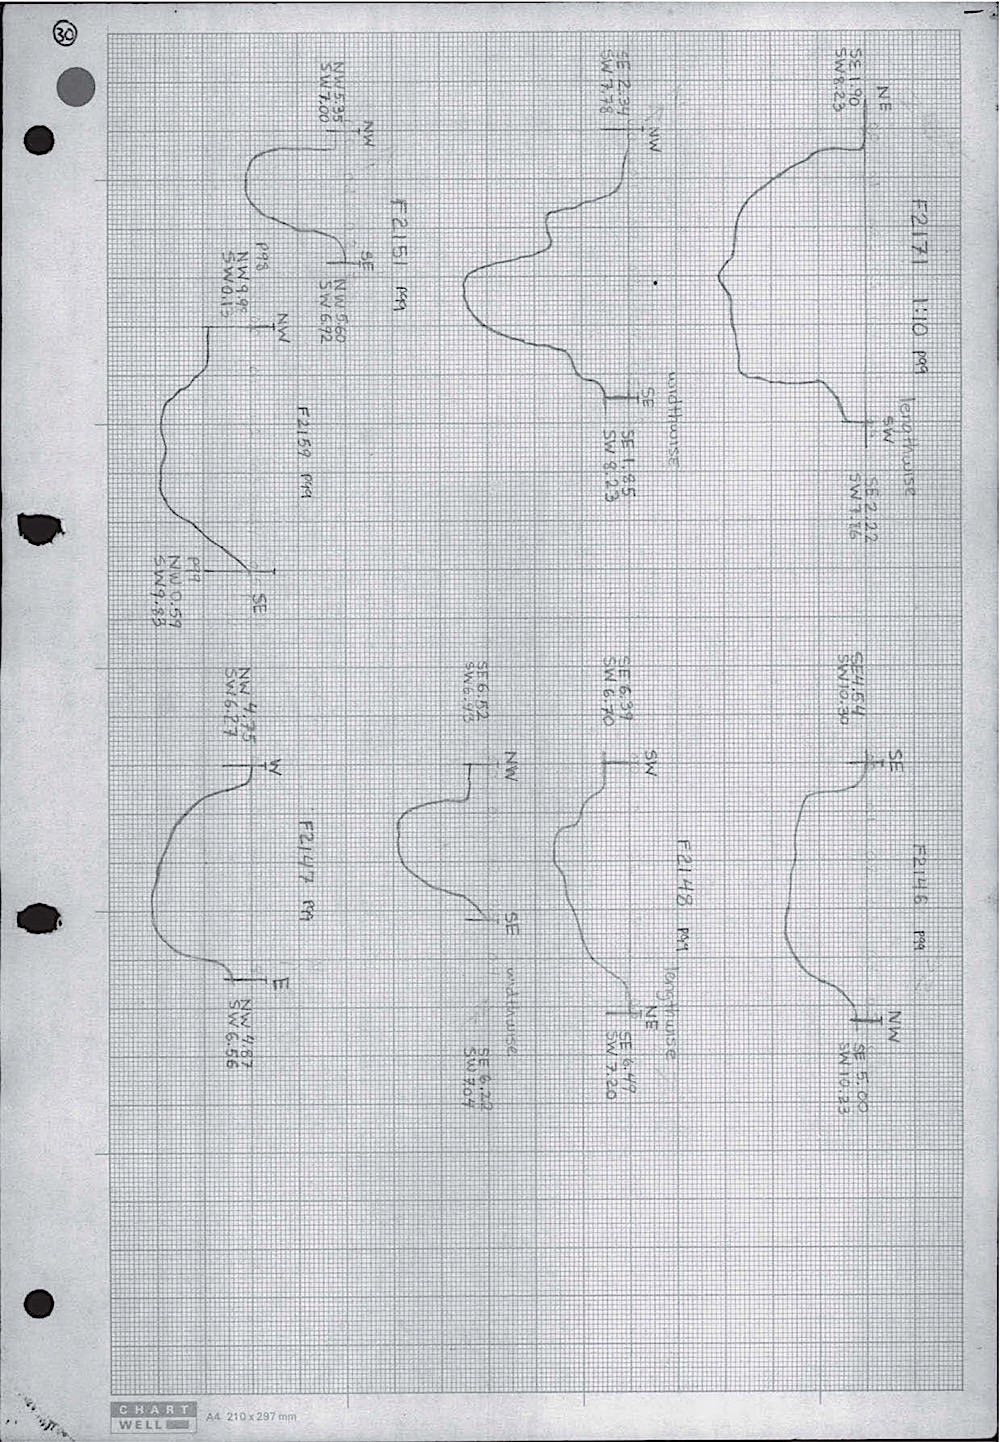 30
F2171 1:10 P99
lengthwise
NE
SE 1.90
SW 8.23
SW
SE 2.22
SW 7.76
NW
SE 2.34
SW 7.78
widthwise
SE
SE 1.85
SW 8.23
F2151 P99
NW
NW 5.35
SW 7.00
SE
NW 5.60
SW 6.92
F2159 P99
NW
P98
NW 9.95
SW 0.13
SE
P99
NW 0.59
SW 9.83
F2146 P99
SE
SE 4.54
SW 10.30
NW
SE 5.00
SW 10.23
F2148 P99
lengthwise
SW
SE 6.39
SW 6.70
NE
SE 6.49
SW 7.20
widthwise
NW
SE 6.52
SW 6.93
SE
SE 6.22
SW 7.04
F2147 P9
W
NW 4.75
SW 6.27
E
NW 4.87
SW 6.56
CHART
WELL
A4 210 x 297 mm